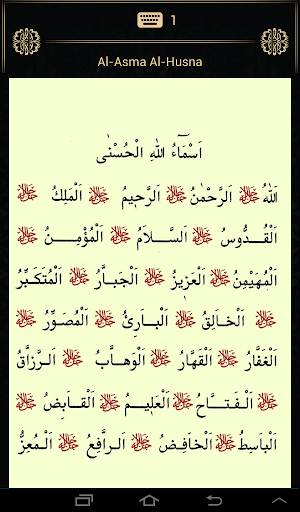 1
Al-Asma Al-Husna
اَسْمَٓاءُ اللهِ الْحُسْنٰى
اَللهُ ﷻ اَلرَّحْمٰنُ ﷻ اَلرَّحِيمُ ﷻ اَلْمَلِكُ ﷻ
اَلْقُدُّوسُ ﷻ اَلسَّلَامُ ﷻ اَلْمُؤْمِنُ ﷻ
اَلْمُهَيْمِنُ ﷻ اَلْعَزِيزُ ﷻ اَلْجَبَّارُ ﷻ اَلْمُتَكَبِّرُ
ﷻ اَلْخَالِقُ ﷻ اَلْبَارِئُ ﷻ اَلْمُصَوِّرُ ﷻ
اَلْغَفَّارُ ﷻ اَلْقَهَّارُ ﷻ اَلْوَهَّابُ ﷻ اَلرَّزَّاقُ
ﷻ اَلْفَتَّاحُ ﷻ اَلْعَلِيمُ ﷻ اَلْقَابِضُ ﷻ
اَلْبَاسِطُ ﷻ اَلْخَافِضُ ﷻ اَلرَّافِعُ ﷻ اَلْمُعِزُّ